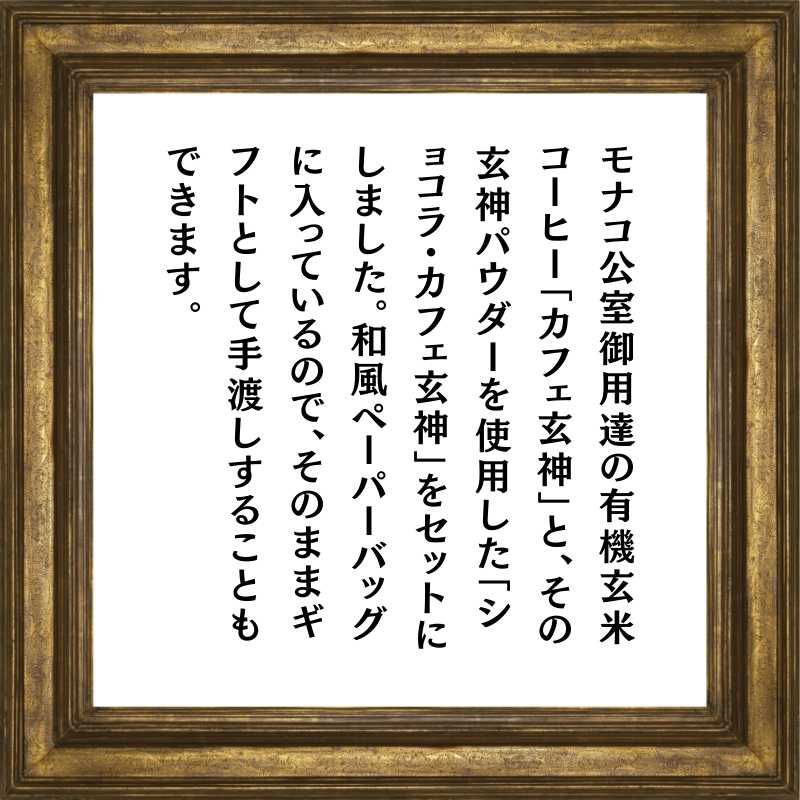 モナコ公室御用達の有機玄米
コーヒー「カフェ玄神」と、その
玄神パウダーを使用した「シ
ョコラ・カフェ玄神」をセットに
しました。和風ペーパーバッグ
に入っているので、そのままギ
フトとして手渡しすることも
できます。